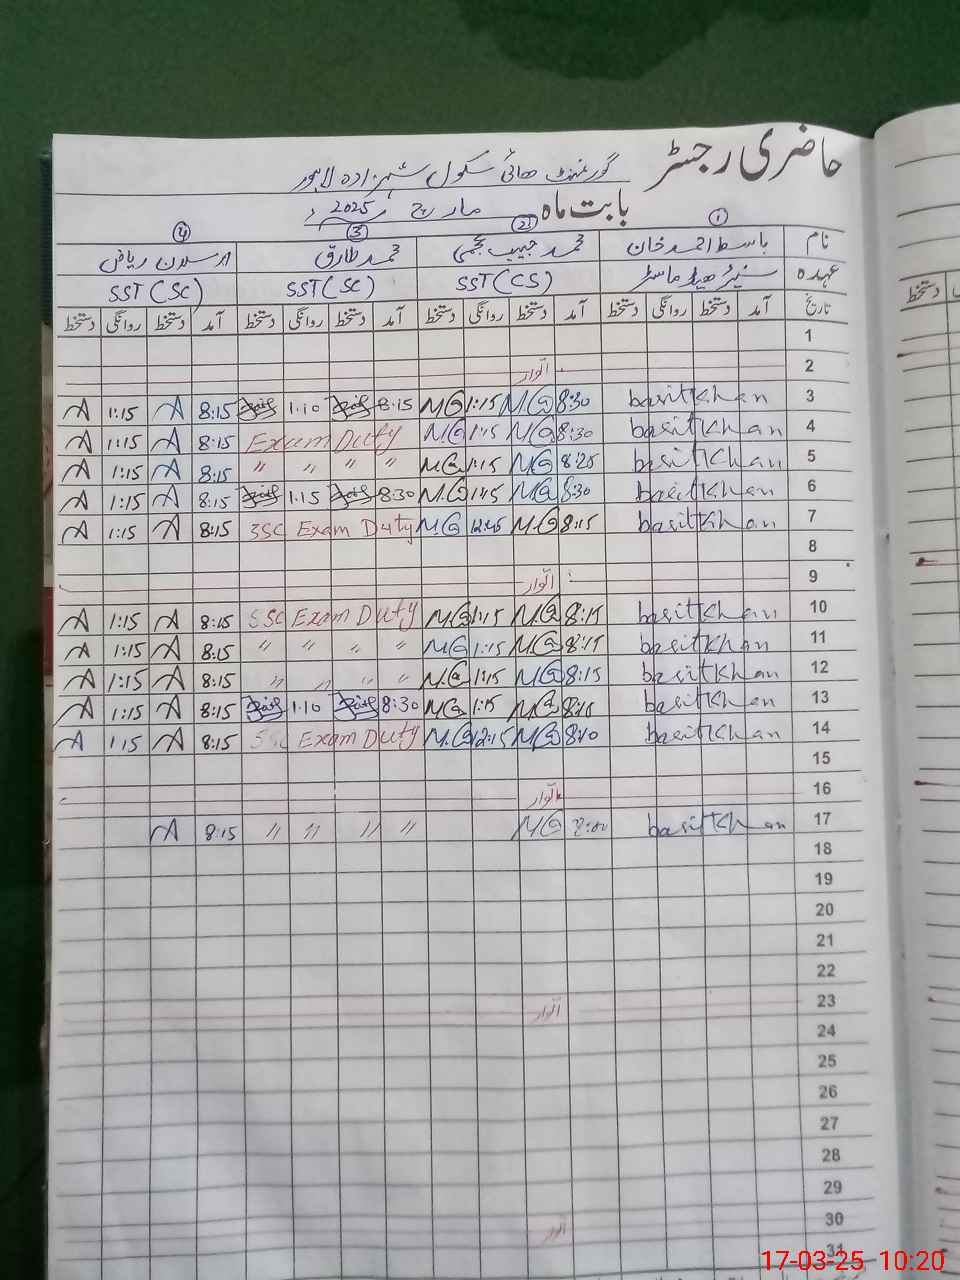 حاضری رجسٹر
گورنمنٹ ھائی سکول شہزادہ لاہور
بابت ماہ مارچ 2025ء
① ② ③ ④
نام باسط احمد خان محمد حبیب نجمی محمد طارق ارسلان ریاض
عہدہ سنیئر ھیڈ ماسٹر SST (CS) SST (SC) SST (SC)
تاریخ آمد دستخط روانگی دستخط آمد دستخط روانگی دستخط آمد دستخط روانگی دستخط آمد دستخط روانگی دستخط
1
2 اتوار
3 basitKhan 8:30 M@ 1:15 M@ 8:15 1:10 8:15 A 1:15 A
4 basitKhan 8:30 M@ 1:15 M@ Exam Duty 8:15 A 1:15 A
5 basitKhan 8:25 M@ 1:15 M@ " " " " 8:15 A 1:15 A
6 basitKhan 8:30 M@ M.@ 8:30 1:15 8:15 A 1:15 A
7 basitKhan 8:15 M.@ 12:45 M.@ SSC Exam Duty 8:15 A 1:15 A
8
9 اتوار
10 basitKhan 8:15 M.@ 1:15 M.@ SSC Exam Duty 8:15 A 1:15 A
11 basitKhan 8:15 M@ 1:15 M@ " " " " 8:15 A 1:15 A
12 basitKhan 8:15 M@ 1:15 M.@ " " " " 8:15 A 1:15 A
13 basitKhan 8:10 M@ 1:15 M@ 8:30 1:10 8:15 A 1:15 A
14 basitKhan 8:10 M@ 12:15 M.@ SSC Exam Duty 8:15 A 1:15 A
15
16 اتوار
17 basitKhan M@ " " " " 8:15 A
18
19
20
21
22
23 اتوار
24
25
26
27
28
29
30 اتوار
31
دستخط
17-03-25 10:20